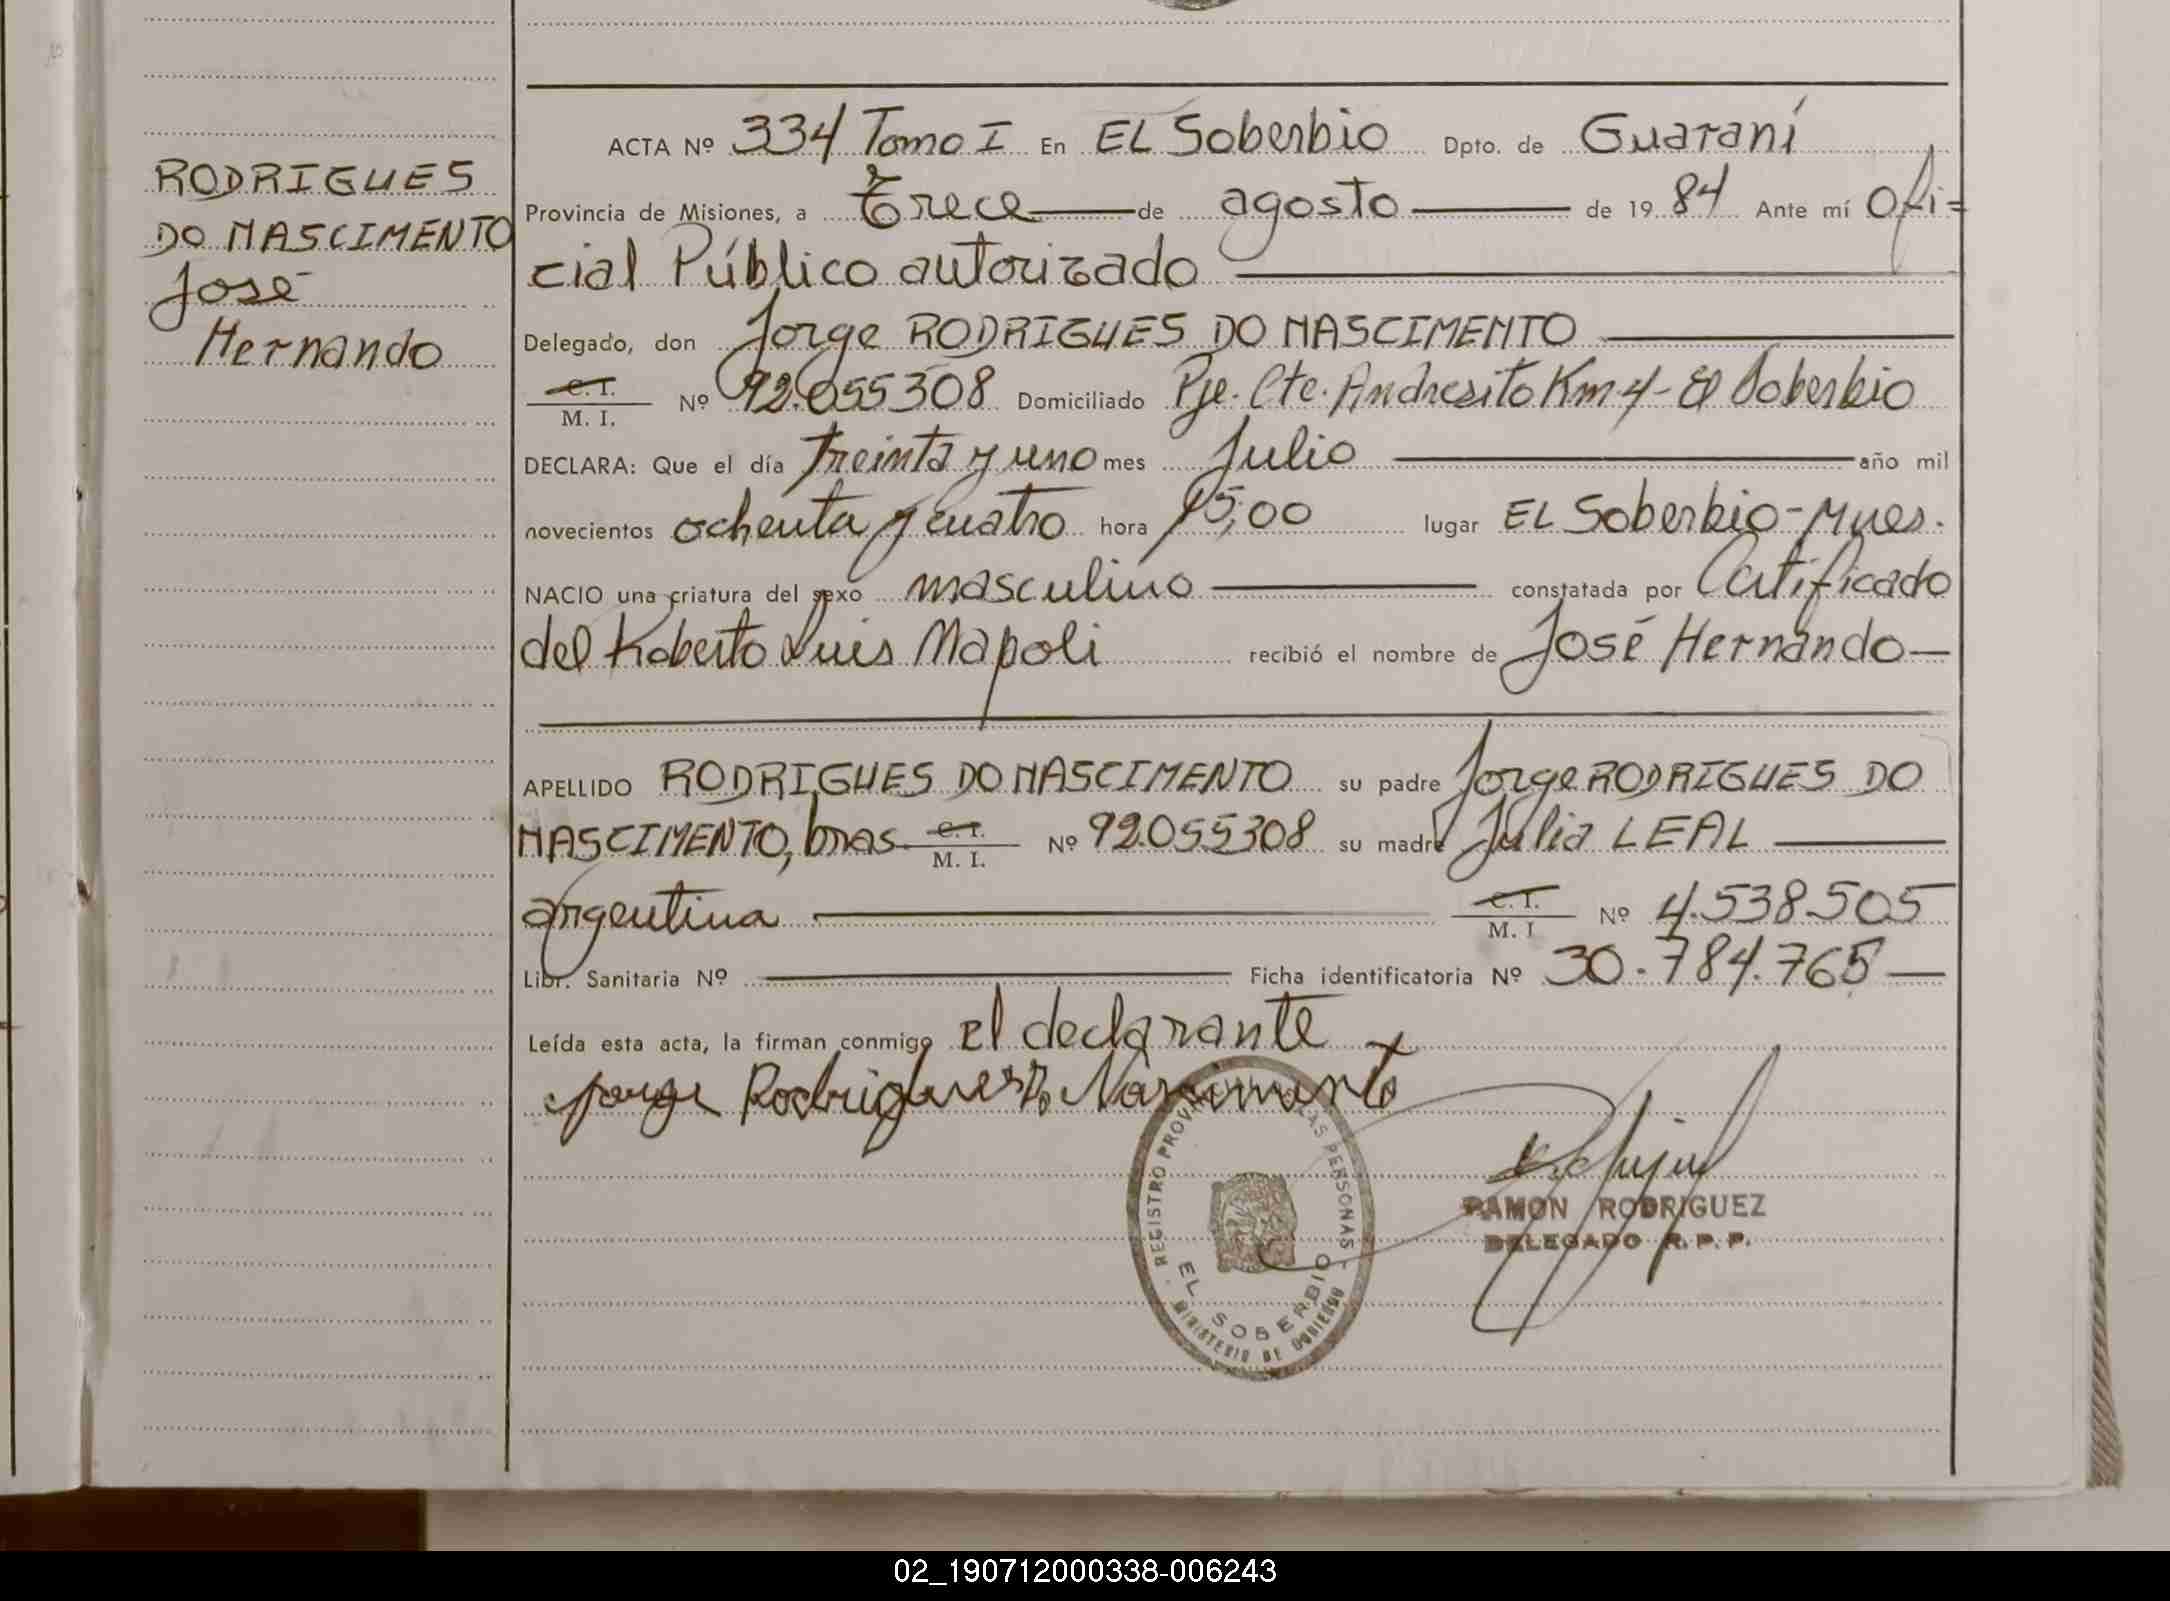 RODRIGUES
DO NASCIMENTO
José
Hernando
ACTA Nº 334 Tomo I En EL Soberbio Dpto. de Guaraní
Provincia de Misiones, a Trece de agosto de 1984 Ante mí Ofi-
cial Público autorizado
Delegado, don Jorge RODRIGUES DO NASCIMENTO
C. I.
M. I. Nº 92.055308 Domiciliado Pje. Cte. Andresito Km 4 - El Soberbio
DECLARA: Que el día treinta y uno mes Julio año mil
novecientos ochenta y cuatro hora 15,00 lugar EL Soberbio - Mnes.
NACIO una criatura del sexo masculino constatada por Certificado
del Roberto Luis Napoli recibió el nombre de José Hernando
APELLIDO RODRIGUES DO NASCIMENTO su padre Jorge RODRIGUES DO
NASCIMENTO, bras. C. I. M. I. Nº 92.055308 su madre Julia LEAL
argentina C. I. M. I Nº 4.538.505
Libr. Sanitaria Nº Ficha identificatoria Nº 30.784.765
Leída esta acta, la firman conmigo el declarante
Jorge Rodrigues Do Nascimento
REGISTRO PROVINCIAL LAS PERSONAS
EL SOBERBIO
MINISTERIO DE GOBIERNO
RAMON RODRIGUEZ
DELEGADO R. P. P.
02_190712000338-006243